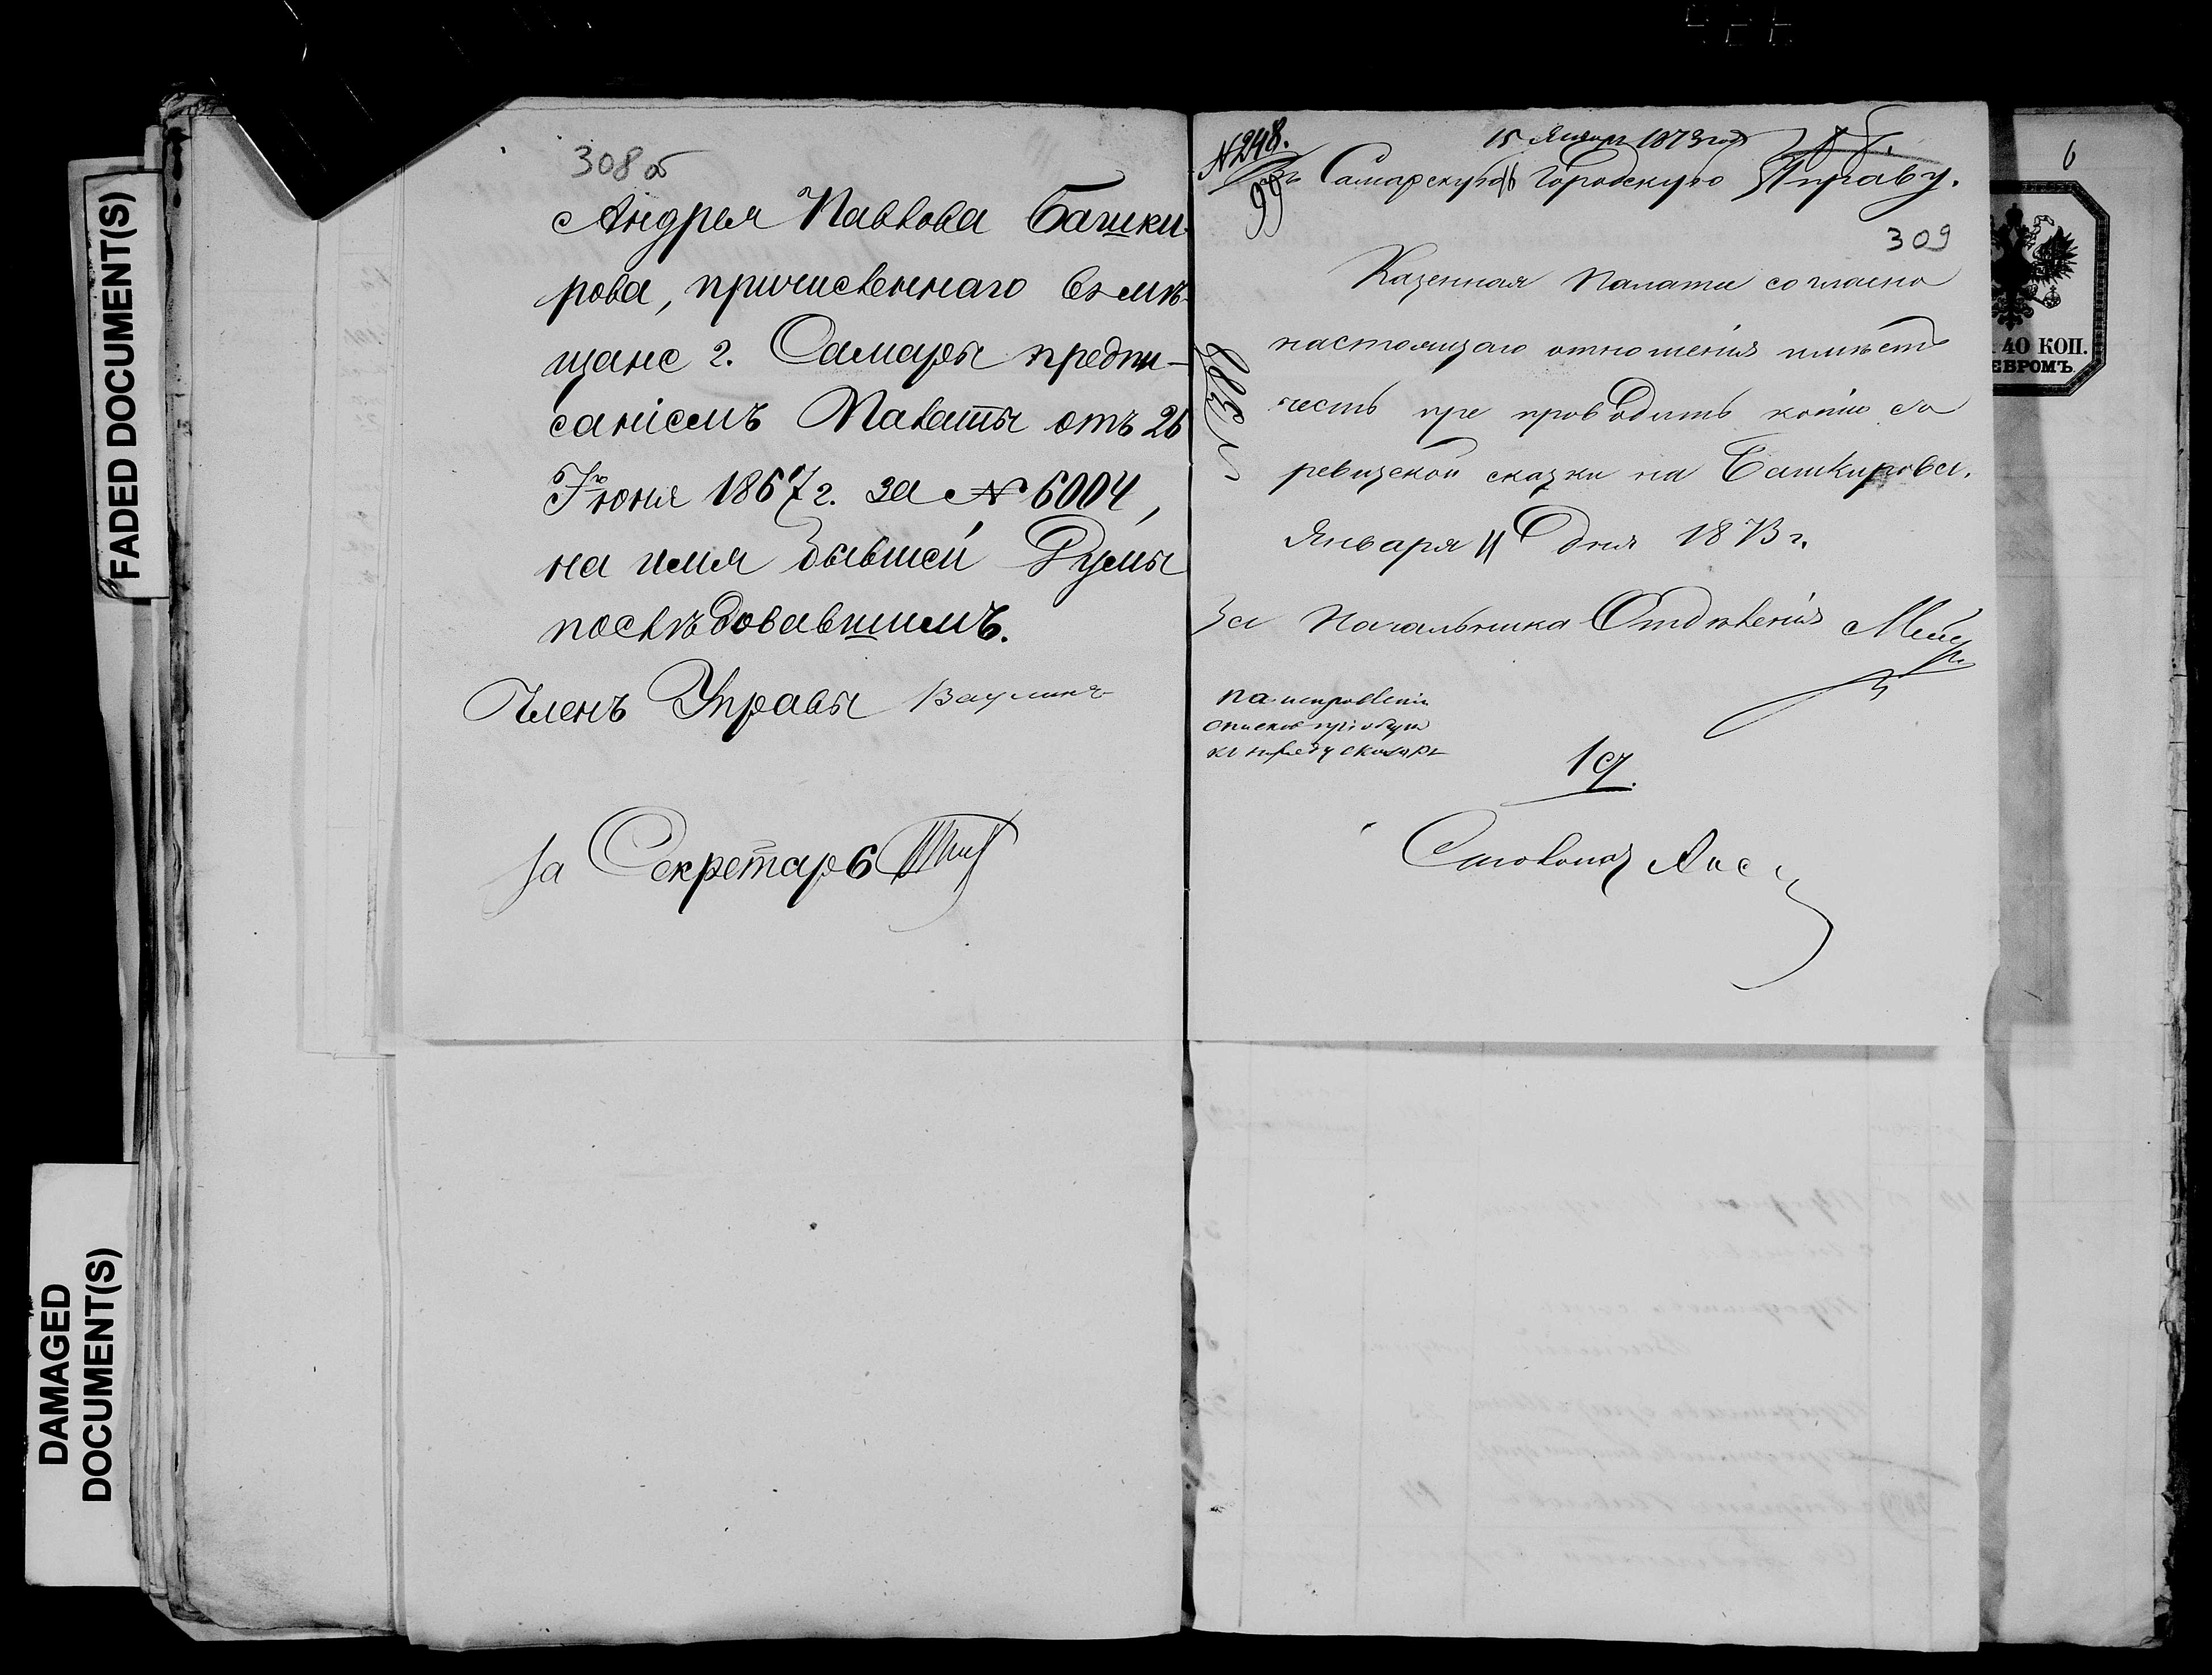 FADED DOCUMENT(S)
DAMAGED
DOCUMENT(S)
308 об
Андрея Павлова Башки-
рова, причисленнаго въ мѣ-
щане г. Самары предпи-
саніемъ Палаты отъ 26
Іюня 1867 г. за № 6004,
на имя бывшей Думы
послѣдовавшимъ.
Членъ Управы Ваулинъ
За Секретарь
№ 248.
99
15 Января 1873 года
Въ Самарскую Городскую Управу.
309
Казенная Палата согласно
настоящаго отношенія имѣетъ
честь препроводить копію съ
ревизской сказки на Башкирова.
Января 11 дня 1873 г.
За Начальника Отдѣленія
Столонач
6
40 КОП.
ЕБРОМЪ.